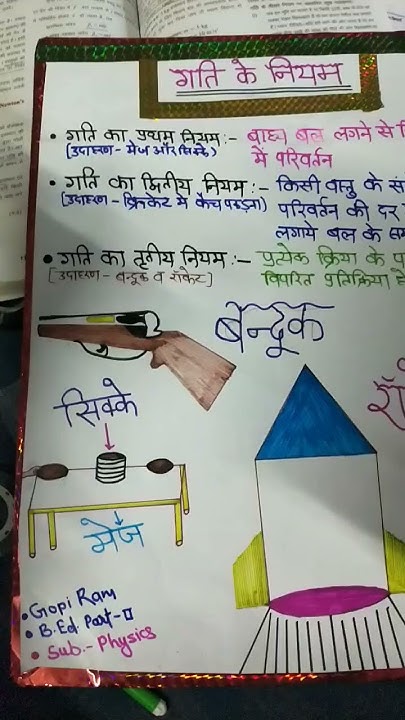 गति के नियम
• गति का प्रथम नियम :- बाह्य बल लगने से
(उदाहरण - मेज और सिक्के) में परिवर्तन
• गति का द्वितीय नियम :- किसी वस्तु के
(उदाहरण - क्रिकेट में कैच पकड़ना) परिवर्तन की दर
लगाये बल के
• गति का तृतीय नियम :- प्रत्येक क्रिया के
[उदाहरण - बन्दूक व रॉकेट] विपरित प्रतिक्रिया
बन्दूक
सिक्के
मेज
• Gopi Ram
• B.Ed Part-II
• Sub.- Physics